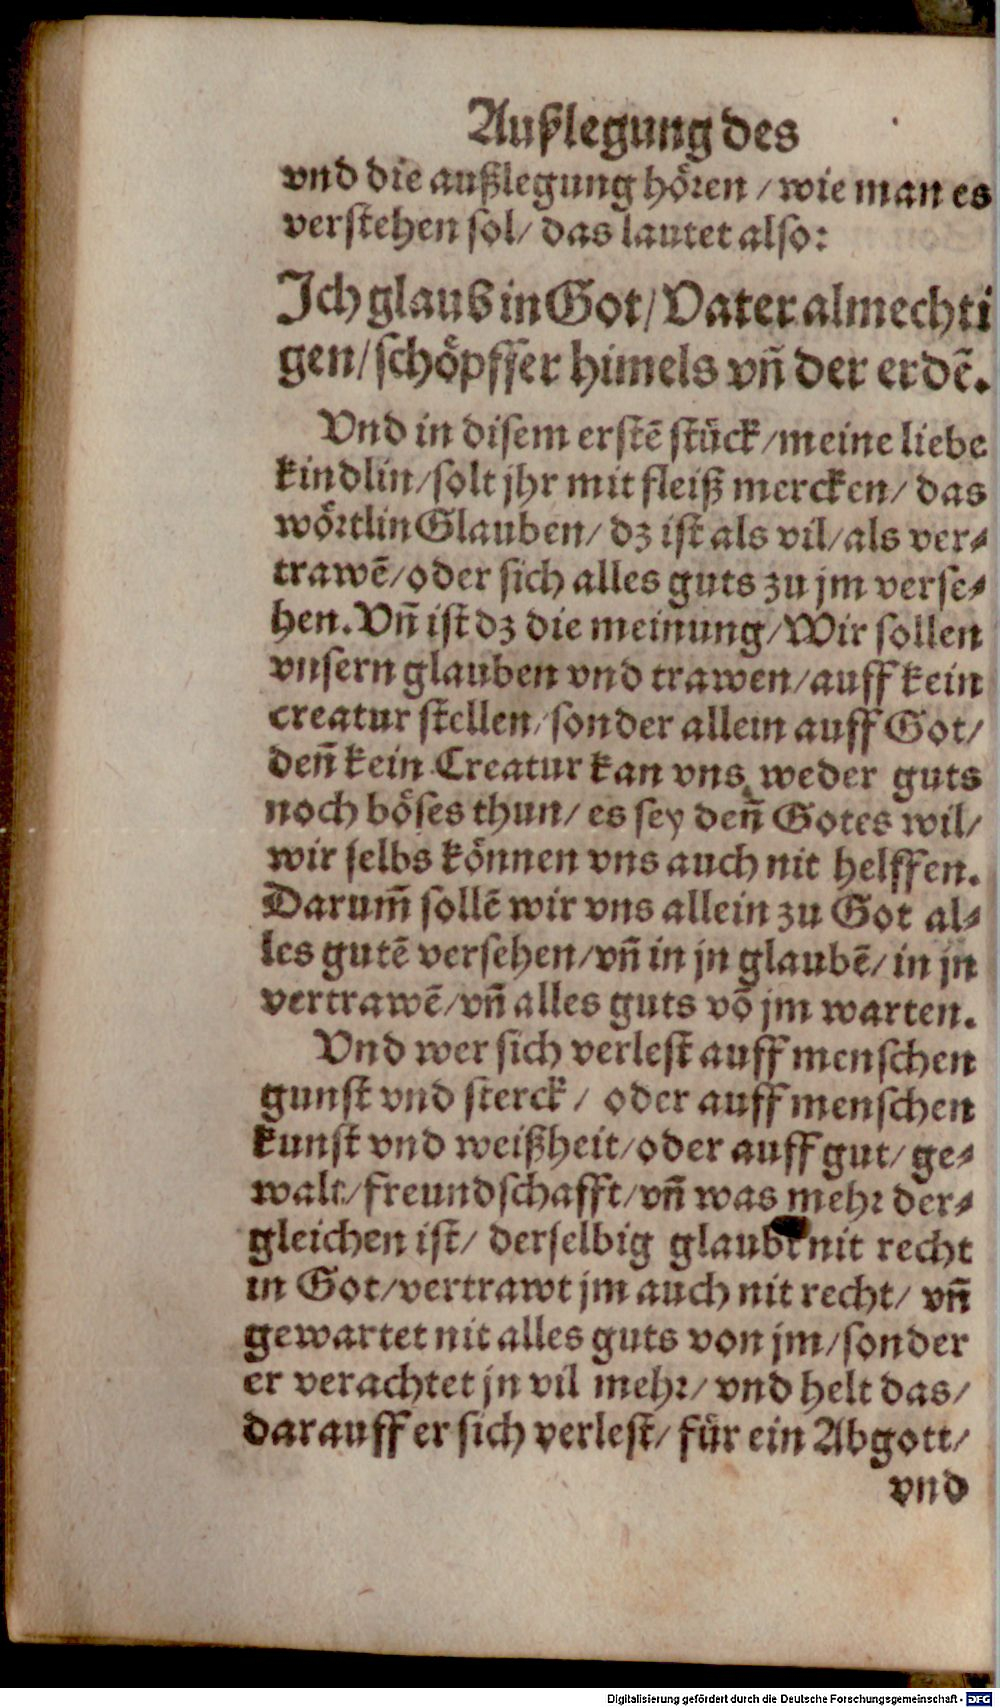 Außlegung des
vnd die außlegung hören / wie man es
verstehen sol / das lautet also:
Ich glaub in Got / Vater almechti
gen / schöpffer himels vn̄ der erdē.
Vnd in disem erstē stück / meine liebe
kindlin / solt jhr mit fleiß mercken / das
wörtlin Glauben / dz ist als vil / als ver⸗
trawē / oder sich alles guts zu jm verse⸗
hen. Vn̄ ist dz die meinung / Wir sollen
vnsern glauben vnd trawen / auff kein
creatur stellen / sonder allein auff Got /
den̄ kein Creatur kan vns weder guts
noch böses thun / es sey den̄ Gotes wil /
wir selbs können vns auch nit helffen.
Darum̄ sollē wir vns allein zu Got al⸗
les gutē versehen / vn̄ in jn glaubē / in jn
vertrawē / vn̄ alles guts vō jm warten.
Vnd wer sich verlest auff menschen
gunst vnd sterck / oder auff menschen
kunst vnd weißheit / oder auff gut / ge⸗
walt / freundschafft / vn̄ was mehr der⸗
gleichen ist / derselbig glaubt nit recht
in Got / vertrawt jm auch nit recht / vn̄
gewartet nit alles guts von jm / sonder
er verachtet jn vil mehr / vnd helt das /
darauff er sich verlest / für ein Abgott /
vnd
Digitalisierung gefördert durch die Deutsche Forschungsgemeinschaft - DFG